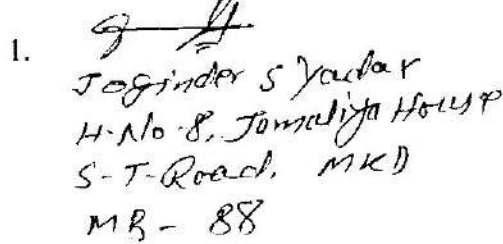 1.
Joginder S Yadav
H.No.8, Jomaliya House
S-T-Road, MKD
MB- 88